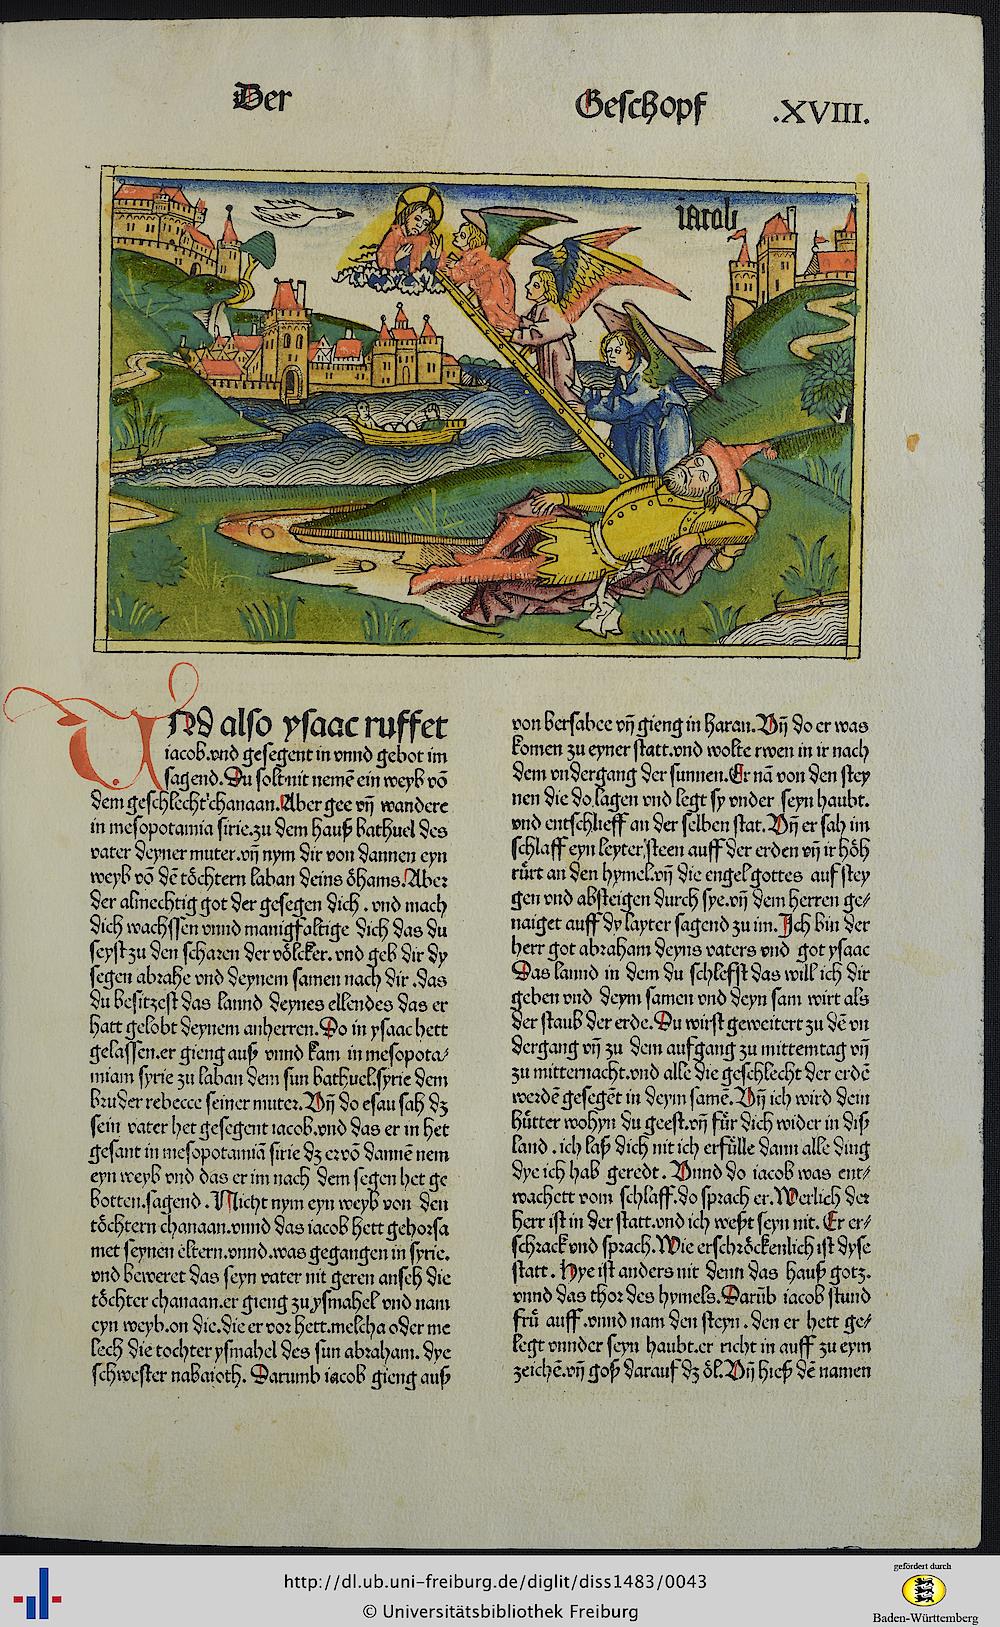 Der
Geschopf .XVIII.
iacob
VNd also ysaac ruffet
iacob.vnd gesegent in vnnd gebot im
sagend.Du solt nit nemē ein weyb vō
dem geschlecht chanaan.Aber gee vn̄ wandere
in mesopotamia sirie.zu dem hauß bathuel des
vater deyner muter.vn̄ nym dir von dannen eyn
weyb vō dē töchtern laban deins öhams.Aber
der almechtig got der gesegen dich . vnd mach
dich wachssen vnnd manigfaltige dich das du
seyst zu den scharen der völcker. vnd geb dir dy
segen abrahe vnd deynem samen nach dir .das
du besitzest das lannd deynes ellendes das er
hatt gelobt deynem anherren.Do in ysaac hett
gelassen.er gieng auß vnnd kam in mesopota/
miam syrie zu laban dem sun bathuel.syrie dem
bruder rebecce seiner muter.Vn̄ do esau sah dz
sein vater het gesegent iacob.vnd das er in het
gesant in mesopotamiā sirie dz er vō dannē nem
eyn weyb vnd das er im nach dem segen het ge
botten.sagend . Nicht nym eyn weyb von den
töchtern chanaan.vnnd das iacob hett gehorsa
met seynen eltern.vnnd.was gegangen in syrie.
vnd beweret das seyn vater nit geren anseh die
töchter chanaan.er gieng zu ysmahel vnd nam
eyn weyb.on die.die er vor hett.melcha oder me
lech die tochter ysmahel des sun abraham. dye
schwester nabaioth. Darumb iacob gieng auß
von bersabee vn̄ gieng in haran.Vn̄ do er was
komen zu eyner statt.vnd wolte rwen in ir nach
dem vndergang der sunnen.Er nā von den stey
nen die do lagen vnd legt sy vnder seyn haubt.
vnd entschlieff an der selben stat.Vn̄ er sah im
schlaff eyn leyter steen auff der erden vn̄ ir höh
rürt an den hymel.vn̄ die engel gottes auf stey
gen vnd absteigen durch sye.vn̄ dem herren ge/
naiget auff dy layter sagend zu im. Jch bin der
herr got abraham deyns vaters vnd got ysaac
Das lannd in dem du schlefst das will ich dir
geben vnd deym samen vnd deyn sam wirt als
der staub der erde.Du wirst geweitert zu dē vn
dergang vn̄ zu dem aufgang zu mittemtag vn̄
zu mitternacht.vnd alle die geschlecht der erdē
werdē gesegēt in deym samē.Vn̄ ich wird dein
hütter wohyn du geest.vn̄ für dich wider in diß
land . ich laß dich nit ich erfülle dann alle ding
dye ich hab geredt . Vnnd do iacob was ent/
wachett vom schlaff.do sprach er.Werlich der
herr ist in der statt.vnd ich weßt seyn nit. Er er/
schrack vnd sprach.Wie erschröckenlich ist dyse
statt. Hye ist anders nit denn das hauß gotz.
vnnd das thor des hymels.Darūb iacob stund
frü auff .vnnd nam den steyn . den er hett ge/
legt vnnder seyn haubt.er richt in auff zu eym
zeichē.vn̄ goß darauf dz öl.Vn̄ hieß dē namen
http://dl.ub.uni-freiburg.de/diglit/diss1483/0043
© Universitätsbibliothek Freiburg
gefördert durch
Baden-Württemberg